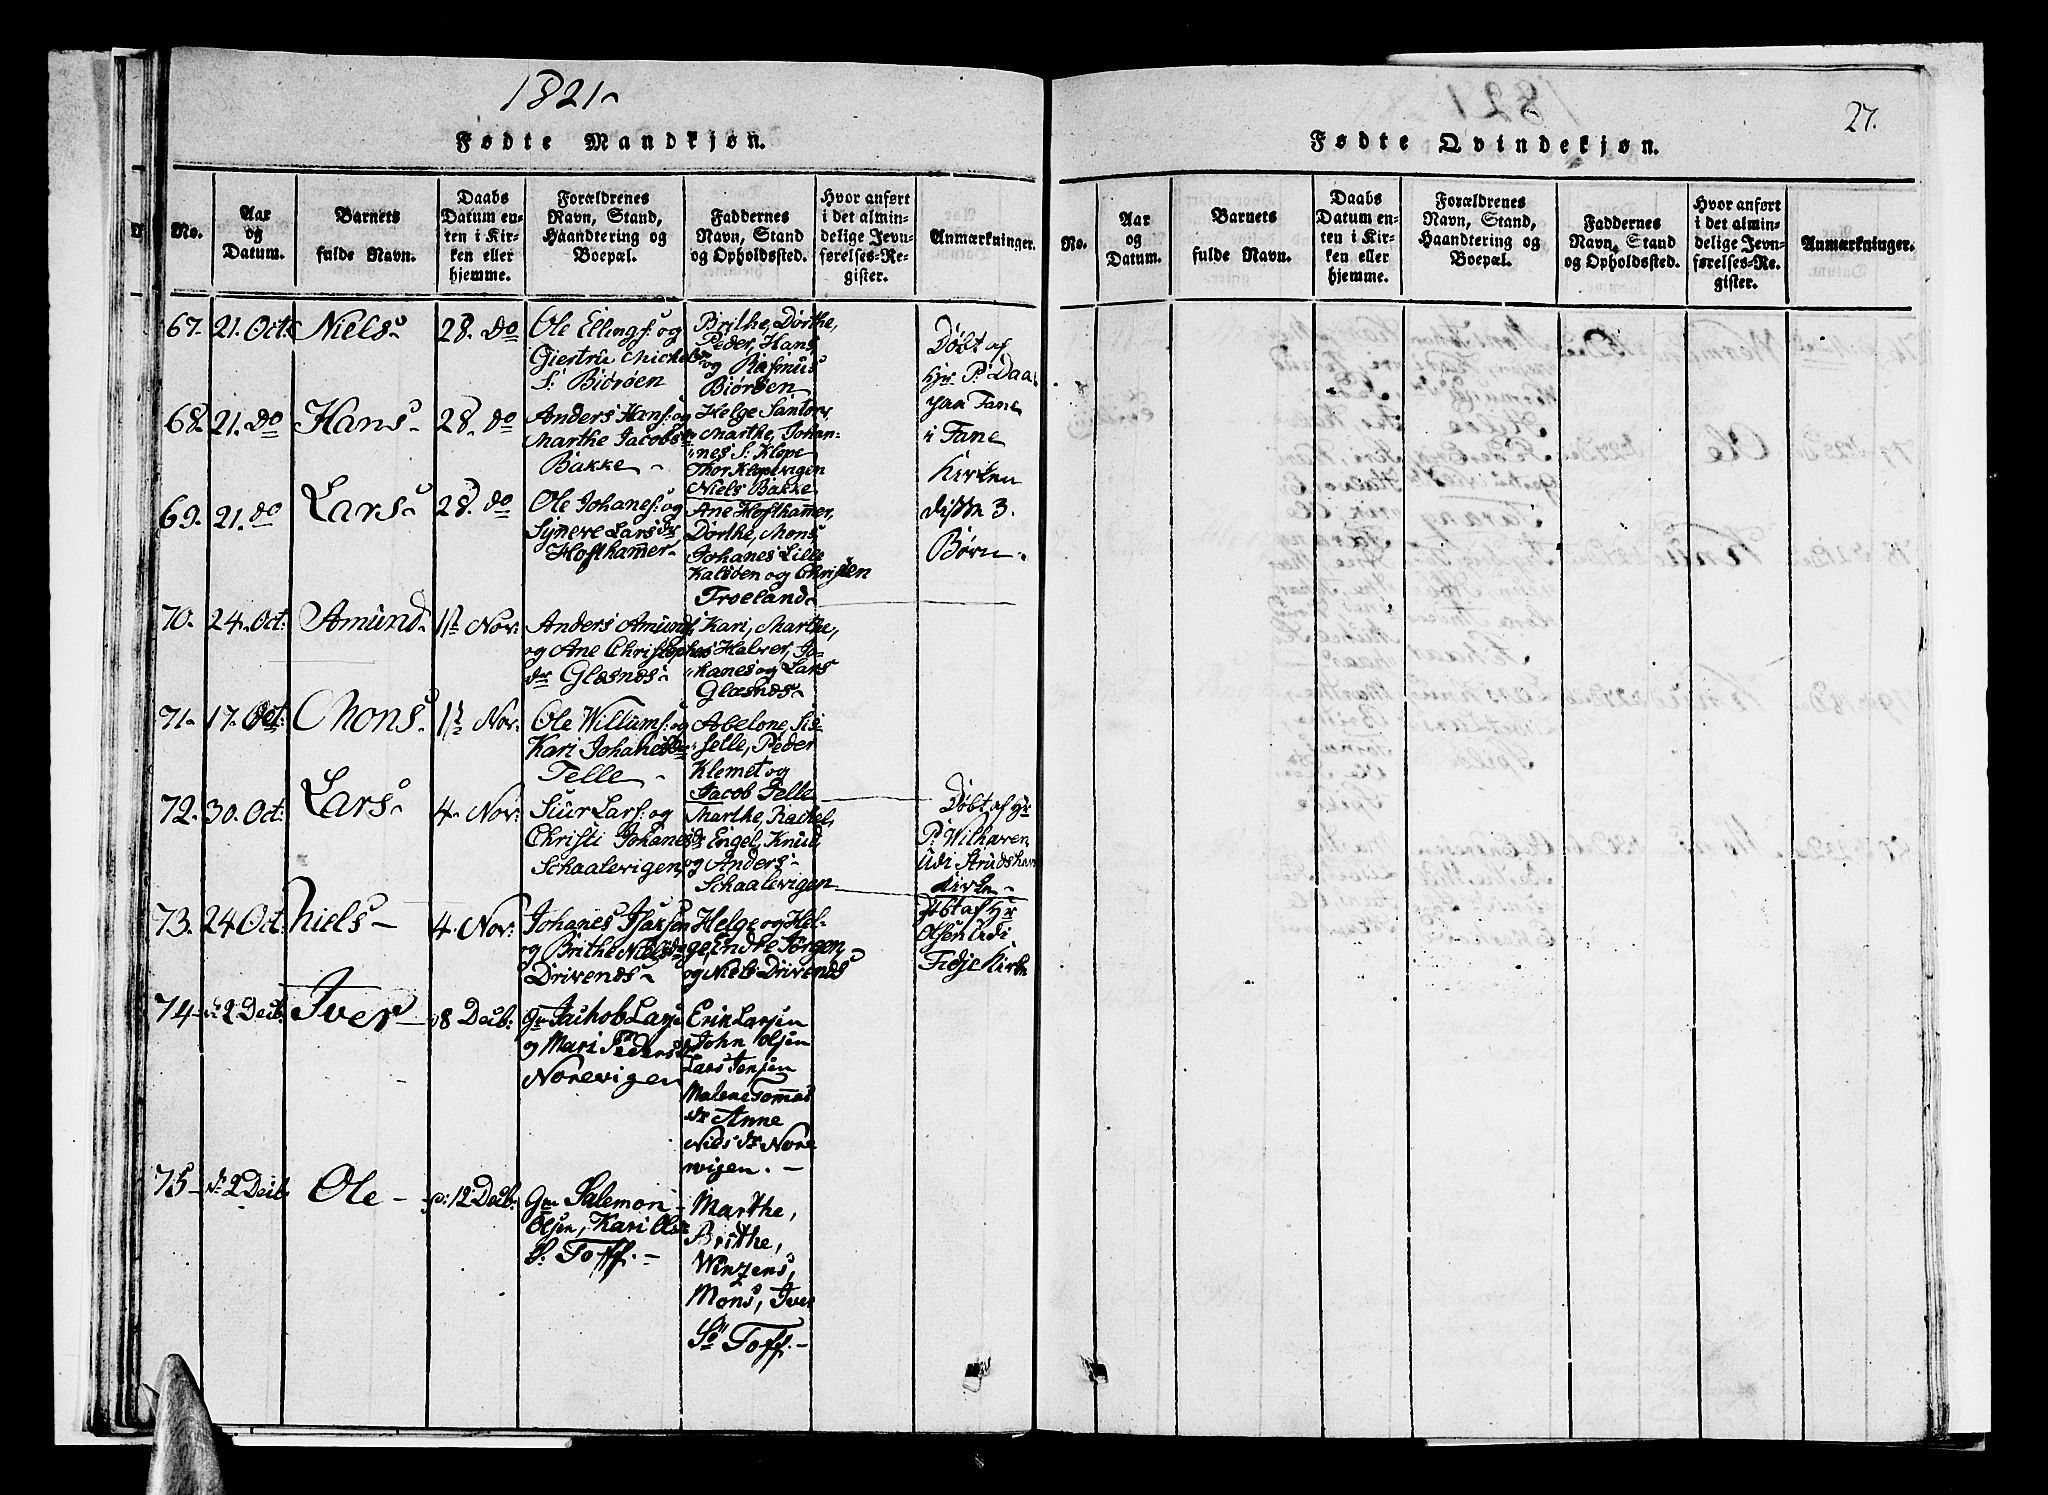 1821
Fødte Mandkjøn.
No.
Aar
og
Datum.
Barnets
fulde Navn.
Daabs
Datum en-
ten i Kir-
ken eller
hjemme.
Forældrenes
Navn, Stand,
Haandtering og
Boepæl.
Faddernes
Navn, Stand
og Opholdssted.
Hvor anført
i det almin-
delige Jevn-
førelses-Re-
gister.
Anmærkninger.
67. 21. Oct: Niels 28. do
Ole Ellings: og
Giertru Michels
S: Biörøen
Brithe, Dorthe,
Peder, Hans
og Rasmus
Biörøen
Döbt af
Hr P: Daa
paa Fane
i Fane
Kirken
disse 3.
Börn.
68. 21. do Hans 28. do
Anders Hans: og
Marthe Jacobs
Bakke
Helge Santorv
Marthe, Johan-
nes S: Klope
Thor Klopevigen
Niels Bakke
69. 21. do Lars 28. do
Ole Johanes: og
Synneve Lars dr
Hofthamer
Ane Hofthamer,
Dorthe, Mons
Johanes Lille
Kalsöen og Christen
Troeland
70. 24. Oct: Amund 1te Nov:
Anders Amunds:
og Ane Christophers
dr Glæsnes
Kari, Marthe,
Halver, Jo-
hanes og Lars
Glæsnes
71. 17. Oct: Mons 1te Nov:
Ole Willums: og
Kari Johanes
Telle
Abelone, Sis-
selle, Peder
Klemet og
Jacob Telle
72. 30. Oct: Lars 4. Nov:
Siur Lars: og
Christi Johanes dr
Schaalevigen
Marthe, Rachel,
Engel, Knud
og Anders
Schaalevigen
Döbt af Hr
P: Wilhaven
udi Strudshavn
Kirke
73. 24 Oct: Niels 4. Nov:
Johanes Isaksen
og Brithe Niels
Drivenes
Helge og Hel-
ge, Endre Torgen
og Niels Drivenes
Döbt af Hr
Olsen udi
Fidje Kirke
74 2 Decb: Iver 8 Decb:
Gm Jachob Larse
og Mari Peders
Norevigen
Erik Larsen
John Olsen
Lars Jensen
Malene Tommas
dr Anne
Niels dr Nore
wigen.
75 2 Decb. Ole 12 Decb:
Gm Salemon
Olsen, Kari Ols
S: Toff.
Marthe,
Brithe,
Winzens,
Mons, Iver
S: Toff.
27.
Fødte Qvindekjøn.
No.
Aar
og
Datum.
Barnets
fulde Navn.
Daabs
Datum en-
ten i Kir-
ken eller
hjemme.
Forældrenes
Navn, Stand,
Haandtering og
Boepæl.
Faddernes
Navn, Stand
og Opholdssted.
Hvor anført
i det almin-
delige Jevn-
førelses-Re-
gister.
Anmærkninger.